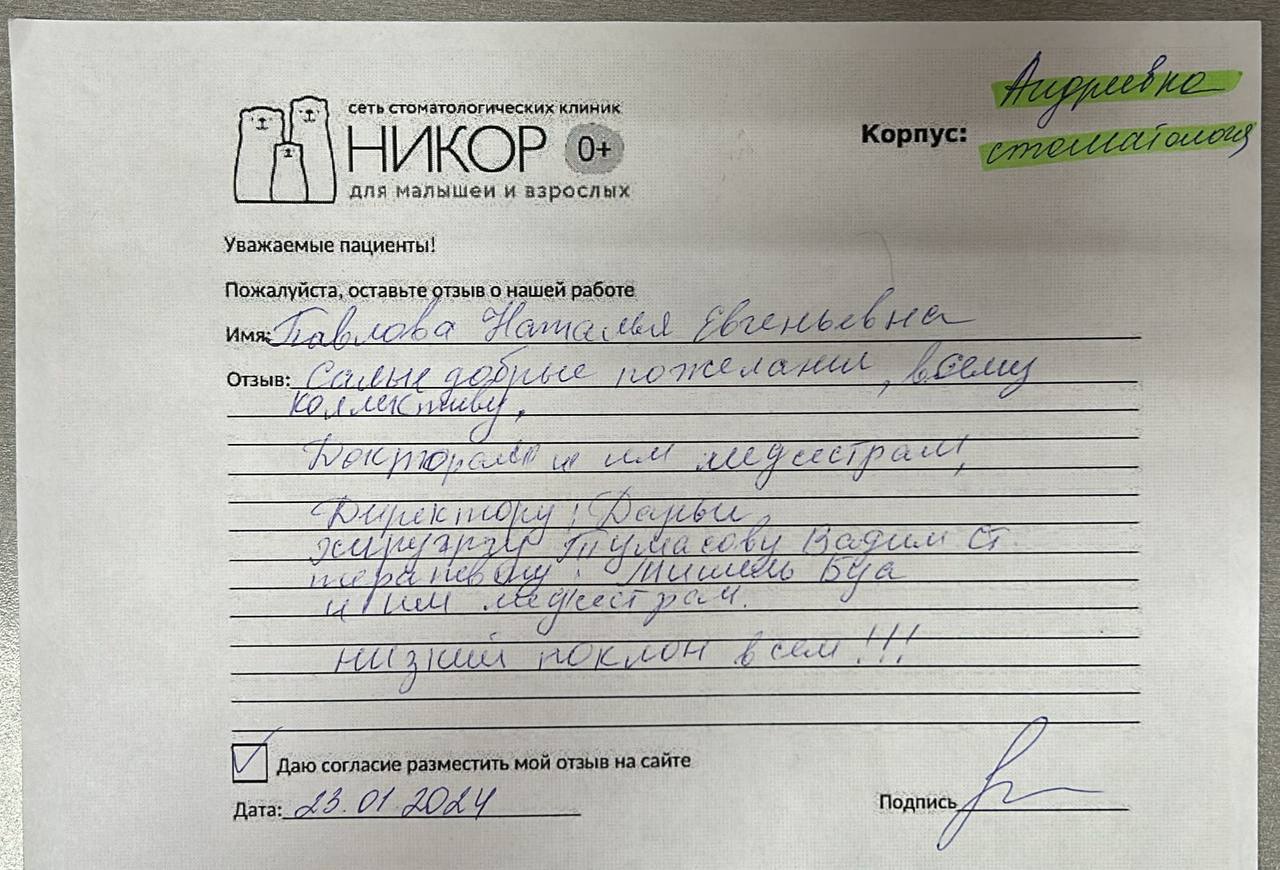 сеть стоматологических клиник
НИКОР 0+
для малышей и взрослых
Андреевка
Корпус: стоматология
Уважаемые пациенты!
Пожалуйста, оставьте отзыв о нашей работе
Имя: Павлова Наталья Евгеньевна
Отзыв: Самые добрые пожелания, всему
коллективу,
Докторам и им медсестрам,
Директору: Дарьи,
хирургу Тумасову Вадим Ст.
терапевту: Мишель Буа
и им медсестрам.
низкий поклон всем!!!
Даю согласие разместить мой отзыв на сайте
Дата: 23.01.2024
Подпись